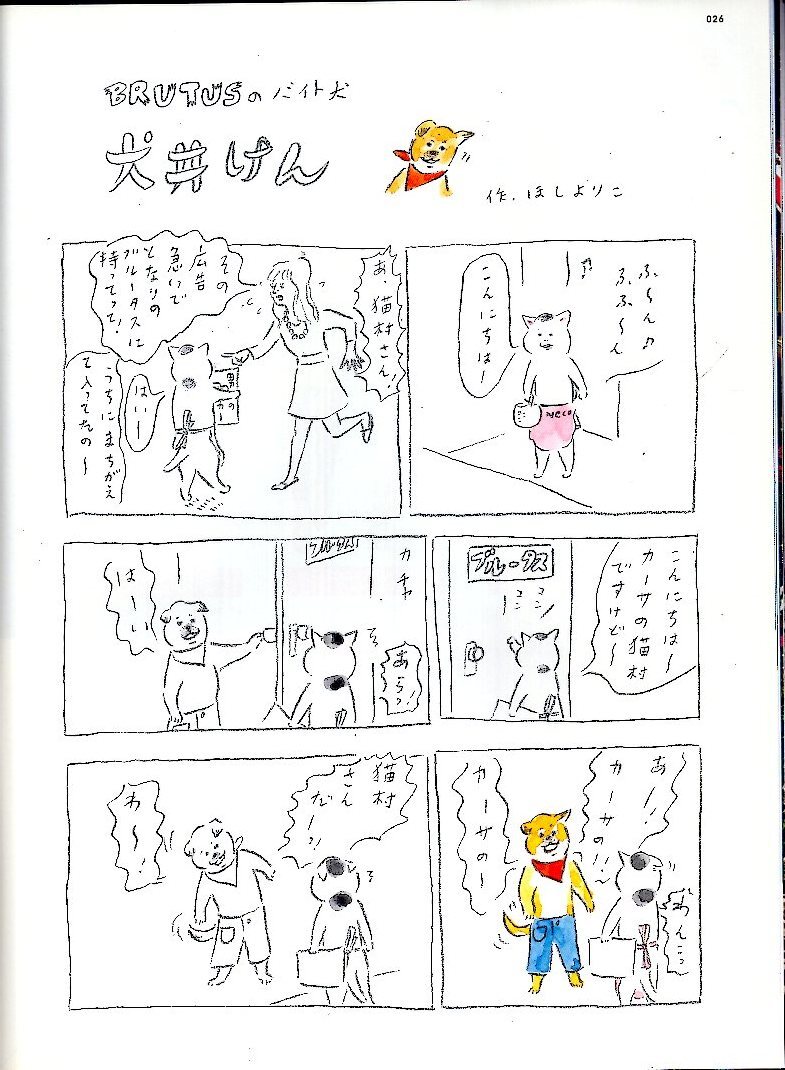 026
BRUTUSのバイト犬
犬井けん
作.ほしよりこ
ふ〜ん♪
ふふ〜ん
こんにちはー
neco
あ、猫村さん!
その
広告
急いで
となりの
ブルータスに
持ってって!
はいー
うちにまちがえ
て入ってたの〜
こんにちは〜
カーサの猫村
ですけど〜
ブルータス
コン
コン
カチャ
ブルータス
あらっ!
はーい
あー!
カーサの!!
カーサのー
わんこっ
猫村
さん
だーっ!
わ〜!